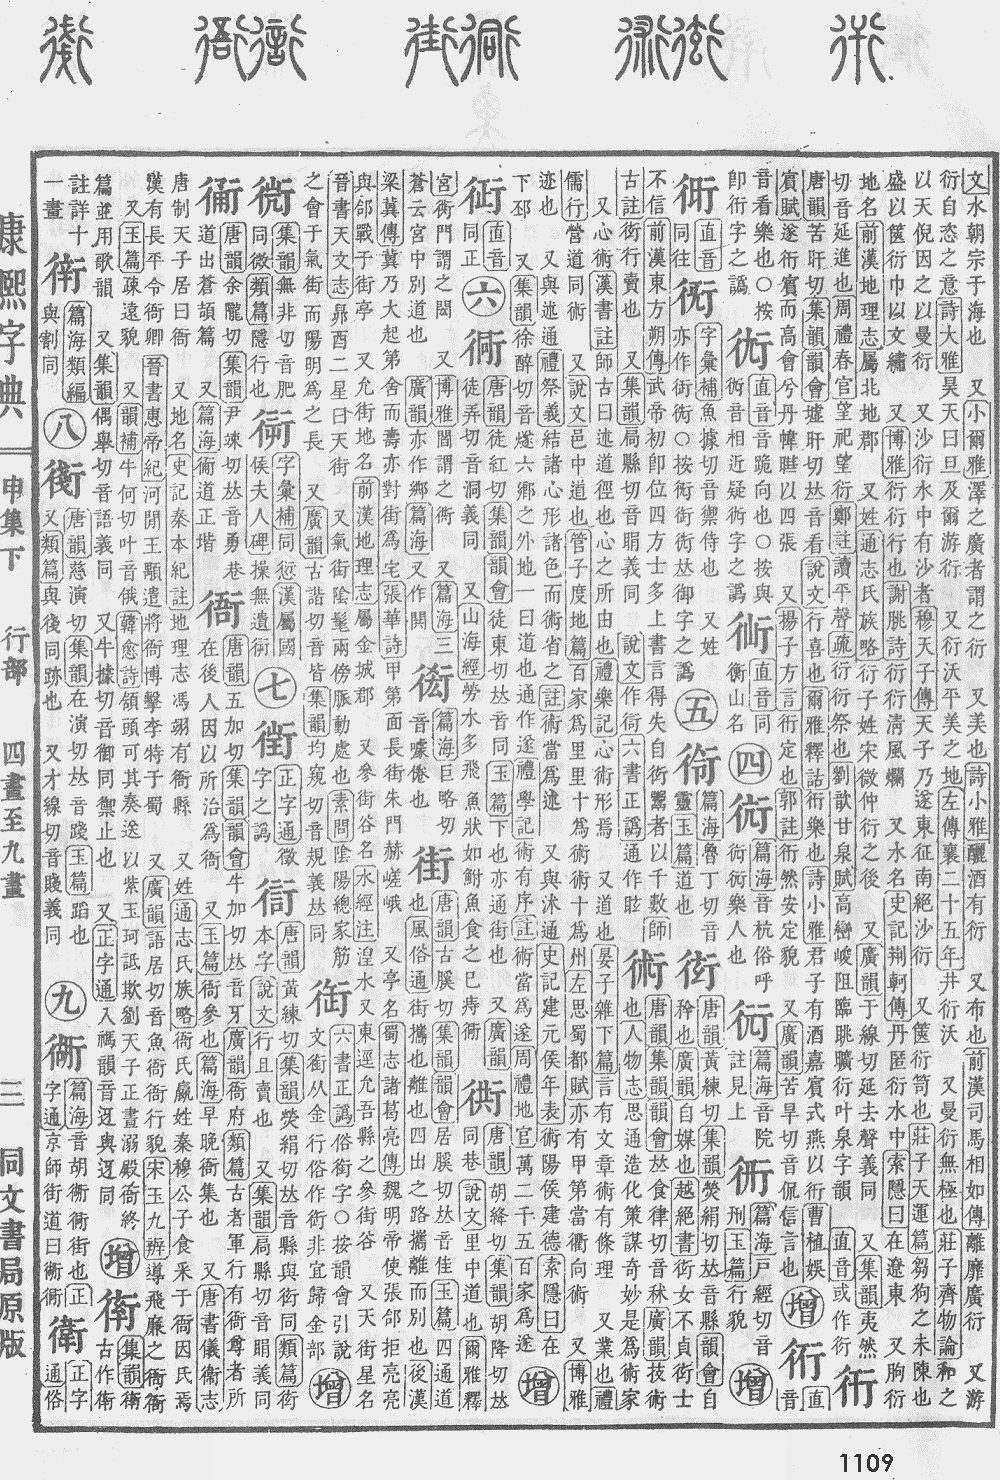 文水朝宗于海也 又小爾雅澤之廣者謂之衍 又美也詩小雅釃酒有衍 又布也前漢司馬相如傳離靡廣衍 又游
衍自恣之意詩大雅昊天曰旦及爾游衍 又衍沃平美之地左傳襄二十五年井衍沃 又曼衍無極也莊子齊物論和之
以天倪因之以曼衍 又沙衍水中有沙者穆天子傳天子乃遂東征南絕沙衍 又篋衍笥也莊子天運篇芻狗之未陳也
盛以篋衍巾以文繡 又博雅衍衍行也謝朓詩衍衍清風爛 又水名史記荆軻傳丹匿衍水中索隱曰在遼東 又朐衍
地名前漢地理志屬北地郡 又姓通志氏族略衍子姓宋微仲衍之後 又廣韻于線切延去聲義同 又集韻夷然
切音延進也周禮春官望祀望衍鄭註讀平聲疏衍衍祭也劉歆甘泉賦高巒峻阻臨眺曠衍叶泉字韻 直音或作衍 衎
唐韻苦旰切集韻韻會墟旰切𠀤音看說文行喜也爾雅釋詁衎樂也詩小雅君子有酒嘉賓式燕以衎曹植娛
賓賦遂衎賓而高會兮丹幃曄以四張 又揚子方言衎定也郭註衎然安定貌 又廣韻苦旱切音侃信言也 增 直
音看樂也○按 直音音跪向也○按與 直音同 四 篇海音杭俗呼 篇海音院 篇海戶經切音
卽衎字之譌 音相近疑 字之譌 衡山名 樂人也 註見上 刑玉篇行貌 增
直音 字彙補魚據切音禦侍也 又姓 五 篇海魯丁切音 衒 唐韻黃練切集韻熒絹切𠀤音縣韻會自
同往 亦作 ○按 𠀤御字之譌 靈玉篇道也 矜也廣韻自媒也越絕書衒女不貞衒士
不信前漢東方朔傳武帝初卽位四方士多上書言得失自衒鬻者以千數師 術 唐韻集韻韻會𠀤食律切音秫廣韻技術
古註衒行賣也 又集韻局縣切音睊義同 說文作衙六書正譌通作眩 也人物志思通造化策謀奇妙是爲術家
又心術漢書註師古曰述道徑也心之所由也禮樂記心術形焉 又道也晏子雜下篇言有文章術有條理 又業也禮
儒行營道同術 又說文邑中道也管子度地篇百家爲里里十爲術術十爲州左思蜀都賦亦有甲第當衢向術 又博雅
迹也 又與述通禮祭義結諸心形諸色而術省之註術當爲述 又與沭通史記建元侯年表術陽侯建德索隱曰在
下邳 又集韻徐醉切音燧六鄉之外地一曰道也通作遂禮學記術有序註術當爲遂周禮地官萬二千五百家爲遂
直音 六 衕 唐韻徒紅切集韻韻會徒東切𠀤音同玉篇下也亦通街也 又廣韻 衖 唐韻胡絳切集韻胡降切𠀤 增
同正 徒弄切音洞義同 又山海經勞水多飛魚狀如鮒魚食之已痔衕 同巷說文里中道也爾雅釋
宮衖門謂之閎 又博雅閻謂之衖 又篇海三 篇海巨略切 街 唐韻古膎切集韻韻會居膎切𠀤音佳玉篇四通道
蒼云宮中別道也 廣韻亦作鄉篇海又作閧 音噱倦也 也風俗通街攜也離也四出之路攜離而別也後漢
梁冀傳冀乃大起第舍而壽亦對街爲宅張華詩甲第面長街朱門赫嵯峨 又亭名蜀志諸葛亮傳魏明帝使張郃拒亮亮
與郃戰于街亭 又允街地名前漢地理志屬金城郡 又參街谷名水經注湟水又東逕允吾縣之參街谷 又天街星名
晉書天文志昴酉二星曰天街 又氣街陰髦兩傍脈動處也素問陰陽總家筋 六書正譌俗衘字○按韻會引說
之會于氣街而陽明爲之長 又廣韻古諧切音皆集韻均窺切音規義𠀤同 文衘从金行俗作 非宜歸金部 增
集韻無非切音肥 字彙補同愆漢屬國 七 正字通徵 唐韻黃練切集韻熒絹切𠀤音縣與衒同類篇衒
同微類篇隱行也 侯夫人碑操無遺 字之譌 本字說文行且賣也 又集韻局縣切音睊義同
衕 唐韻余隴切集韻尹竦切𠀤音勇巷 衙 唐韻五加切集韻韻會牛加切𠀤音牙廣韻衙府類篇古者軍行有衙尊者所
道出蒼頡篇 又篇海衕道正堦 在後人因以所治爲衙 又玉篇衙參也篇海早晚衙集也 又唐書儀衞志
唐制天子居曰衙 又地名史記秦本紀註地理志馮翊有衙縣 又姓通志氏族略衙氏嬴姓秦穆公子食采于衙因氏焉
漢有長平令衙卿晉書惠帝紀河閒王顒遣將衙博擊李特于蜀 又廣韻語居切音魚衙衙行貌宋玉九辨導飛廉之衙衙
又玉篇疎遠貌 又韻補牛何切叶音俄韓愈詩領頭可其奏送以紫玉珂詆欺劉天子正晝溺殿衙終
篇𠀤用歌韻 又集韻偶舉切音語義同 又牛據切音御同禦止也 又正字通入禡韻音迓與迓同 增 集韻衞
註詳十 篇海類編 八 衠 唐韻慈演切集韻在演切𠀤音踐玉篇蹈也 九 篇海音胡衚衕街也正 衛 正字
一畫 與割同 又類篇與後同跡也 又才線切音賤義同 字通京師街道曰衚衕 古作衞 通俗
康熙字典 申集下 行部 四畫至九畫 三 同文書局原版
1109